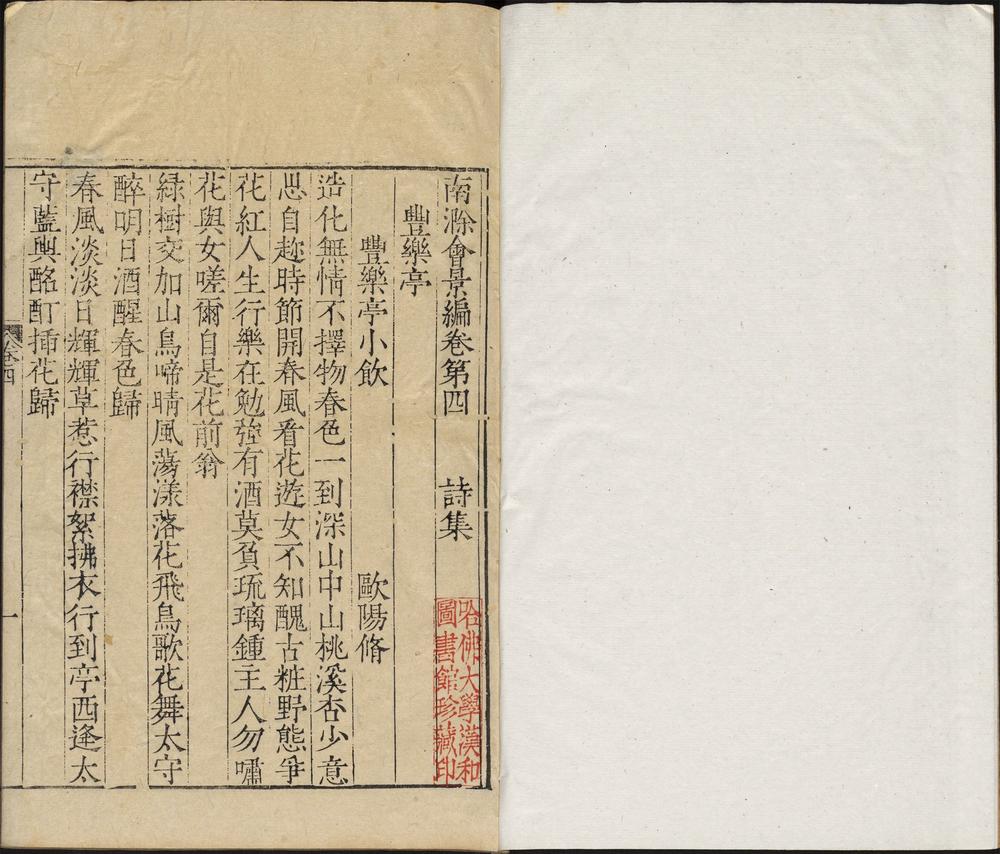 南滁會景編卷第四　詩集
豐樂亭
豐樂亭小飲　歐陽脩
造化無情不擇物春色一到深山中山桃溪杏少意
思自趂時節開春風看花遊女不知醜古粧野態爭
花紅人生行樂在勉強有酒莫負琉璃鍾主人勿嘯
花與女嗟爾自是花前翁
綠樹交加山鳥啼晴風蕩漾落花飛鳥歌花舞太守
醉明日酒醒春色歸
春風淡淡日輝輝草惹行襟絮拂衣行到亭西逢太
守藍輿酩酊揷花歸
卷四
一
哈佛大學漢和
圖書館珍藏印